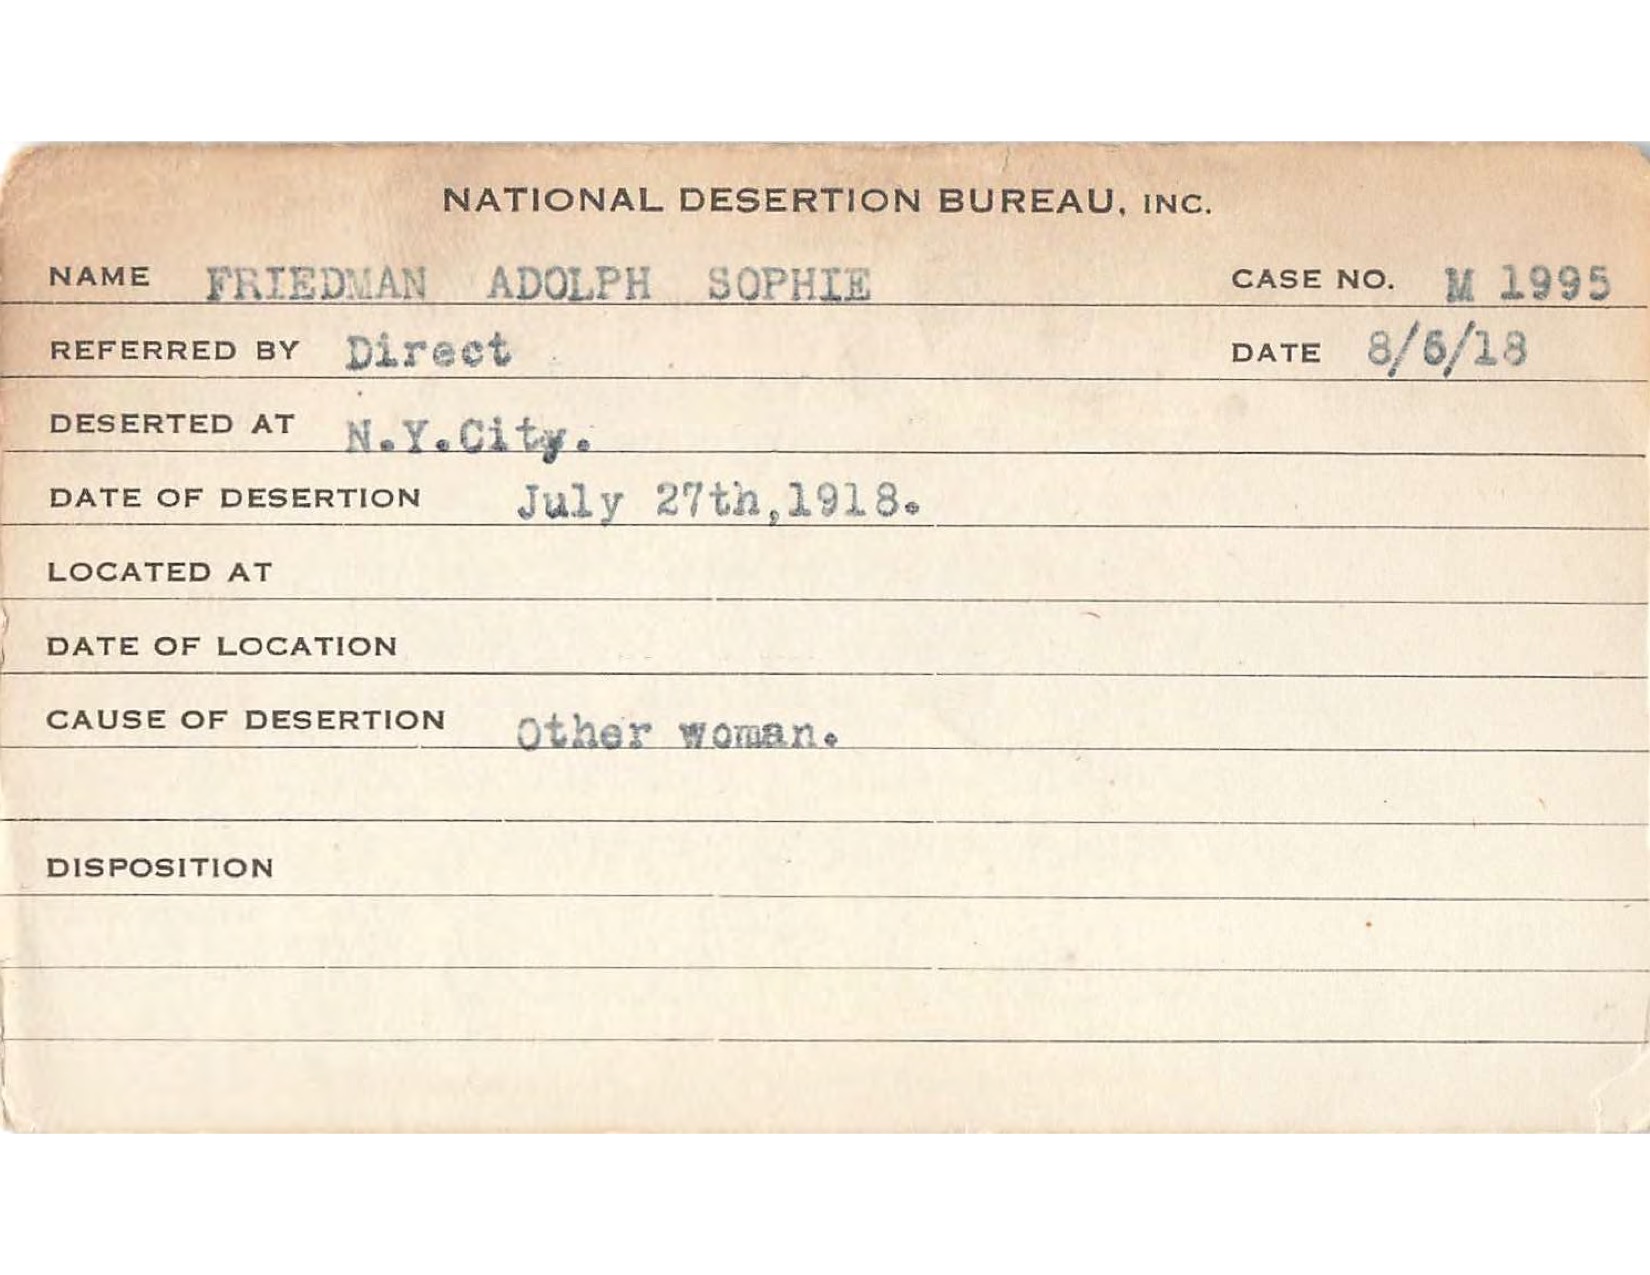 NATIONAL DESERTION BUREAU, INC.
NAME FRIEDMAN ADOLPH SOPHIE CASE NO. M 1995
REFERRED BY Direct DATE 8/6/18
DESERTED AT N.Y.City.
DATE OF DESERTION July 27th,1918.
LOCATED AT
DATE OF LOCATION
CAUSE OF DESERTION Other woman.
DISPOSITION